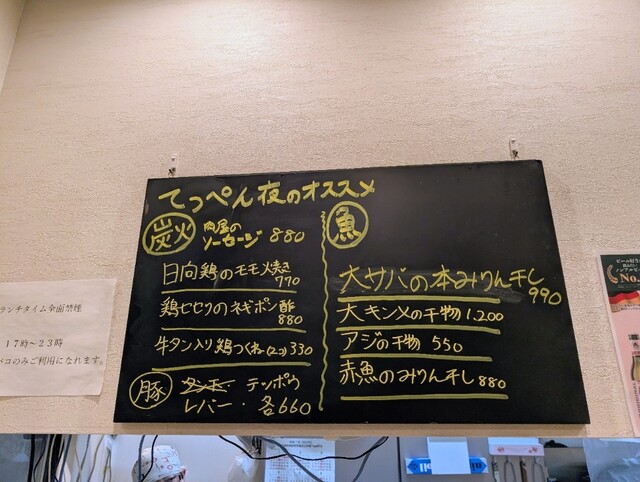 てっぺん夜のオススメ
炭火
肉屋の
ソーセージ 880
日向鶏のモモ焼き
770
鶏セセリのネギポン酢
880
牛タン入り鶏つくね(2コ)330
豚
テッポウ
レバー・各660
魚
大サバの本みりん干し
990
大キンメの干物 1.200
アジの干物 550
赤魚のみりん干し 880
ランチタイム全面禁煙
17時～23時
バコのみご利用になれます。
No.